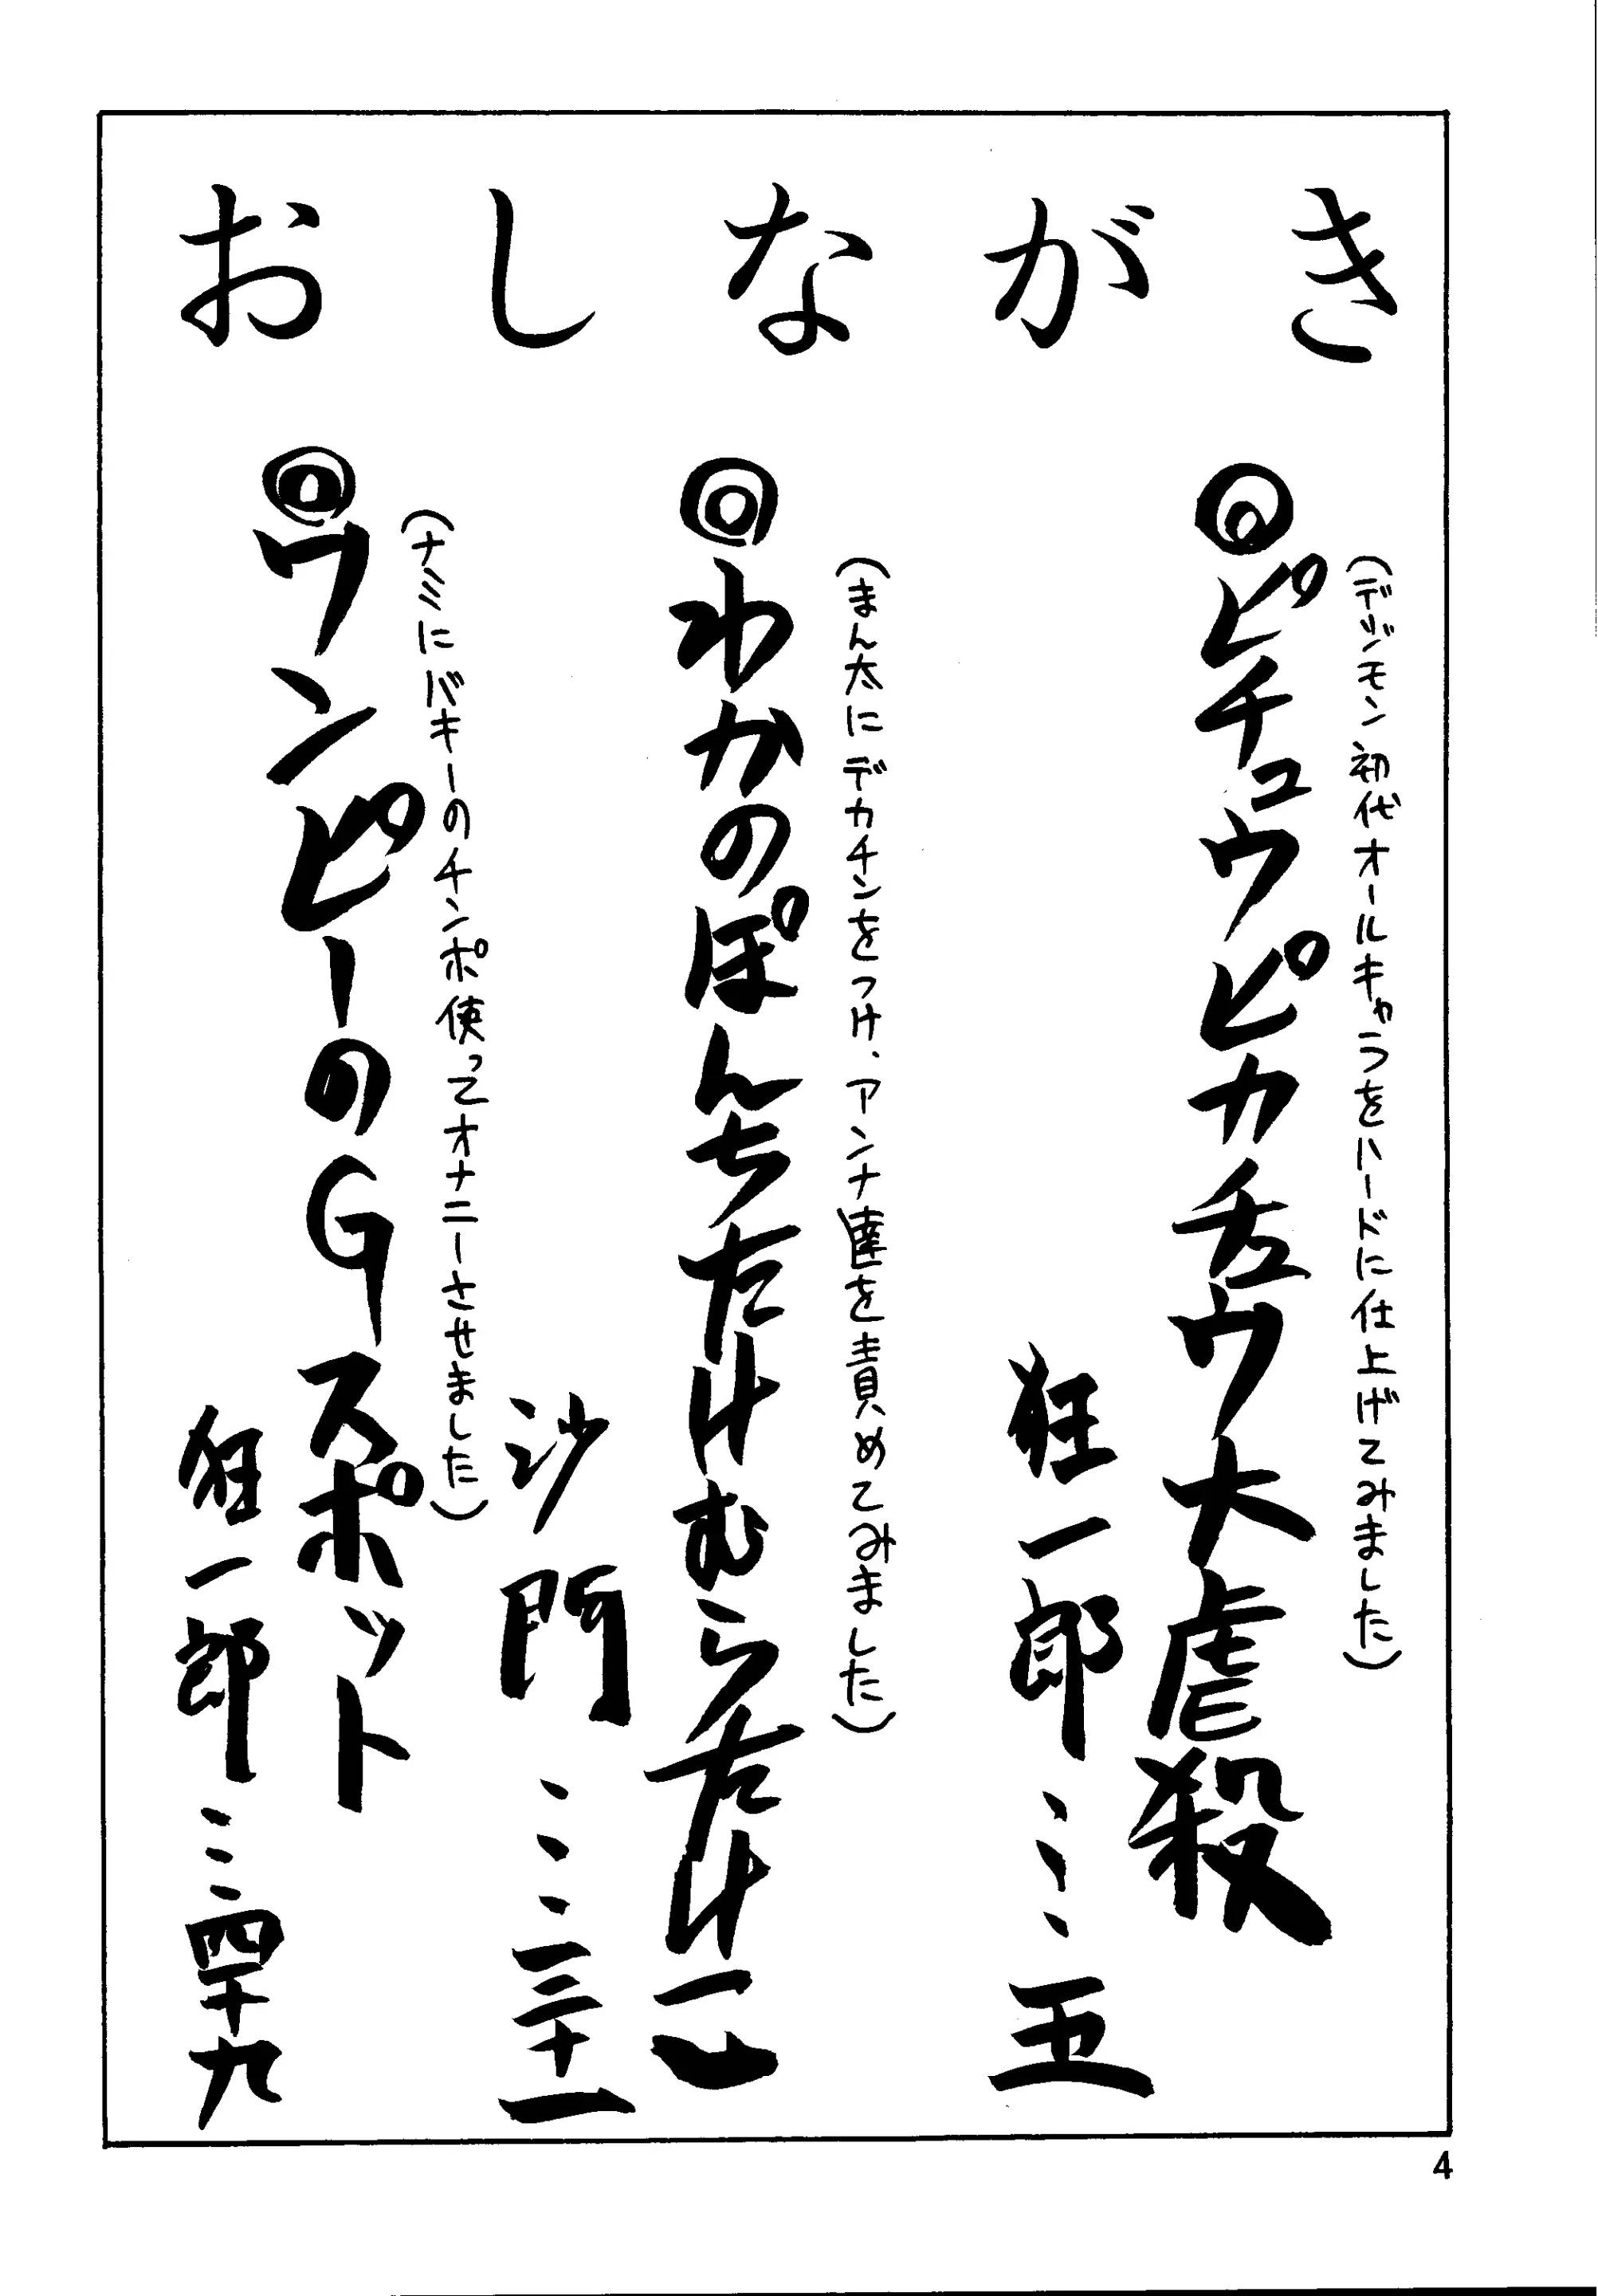 おしながき
(デジモン初代オールキャラをハードに仕上げてみました)
◎ピチュウピカチュウ大虐殺
狂一郎……五
(まん太にデカチンをつけ、アンナ達を責めてみました)
◎わかのぽんちたけむらたけ
沙門……三十一
(ナミにバキーのチンポ使ってオナニーさせました)
◎ワンピーのGスポット
狂一郎……四十九
4